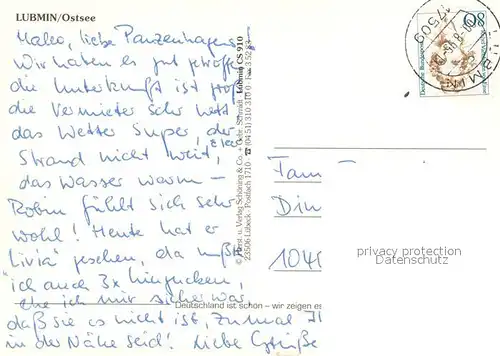 LUBMIN/Ostsee
Hallo, liebe Panzenhagens
Wir haben es gut getroffen
die Unterkunft ist
die Vermieter sehr nett
das Wetter super, der
Strand nicht weit,
das Wasser warm –
Robin fühlt sich sehr
wohl! Heute hat er
"Livia" gesehen, da mußte
ich auch 3x hingucken,
ehe ich mir sicher war,
daß sie es nicht ist, zumal
in der Nähe seid! Liebe Grüße
Deutschland ist schön – wir zeigen es
© Herst. u. Verlag Schöning & Co. + Gebr. Schmidt Lubmin CS 910
23506 Lübeck · Postfach 1710 · ☎ (04 51) 310 310 · Fax 3 52 83
80
Deutsche Bundespost
17509
LUBMIN
Fam
Din
104
privacy protection
Datenschutz